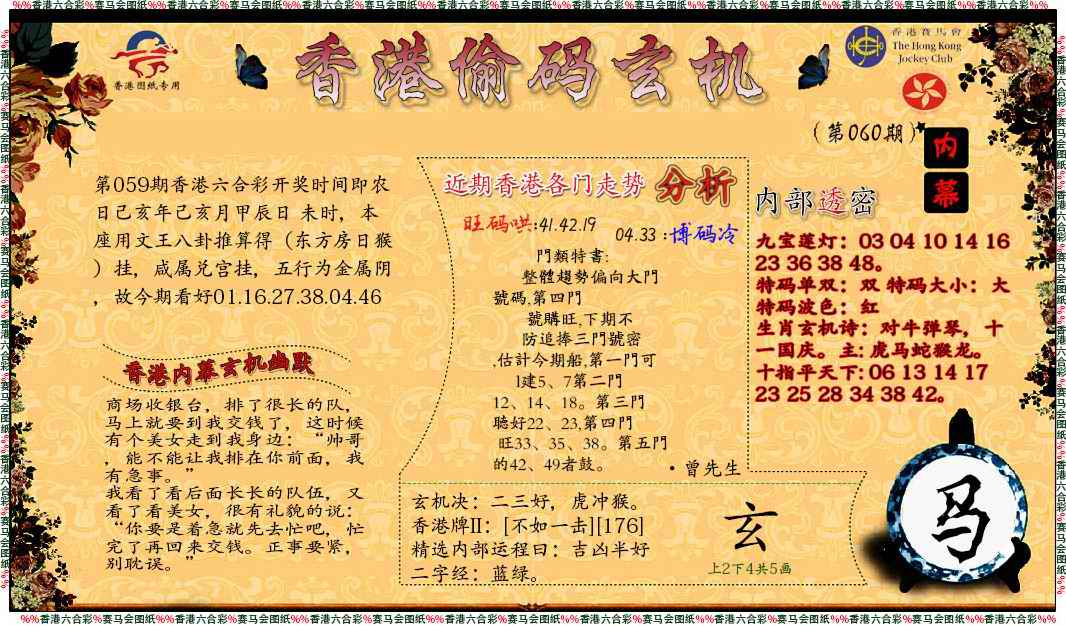 %%香港六合彩%赛马会图纸%%香港六合彩%赛马会图纸%%香港六合彩%赛马会图纸%%香港六合彩%赛马会图纸%%香港六合彩%赛马会图纸%%香港六合彩%赛马会图纸%%香港六合彩%赛马会图纸%%
香港图纸专用
香港偷码玄机
香港賽馬會
The Hong Kong
Jockey Club
(第060期)
内
幕
第059期香港六合彩开奖时间即农
日己亥年己亥月甲辰日 未时，本
座用文王八卦推算得（东方房日猴
）挂，咸属兑宫挂，五行为金属阴
，故今期看好01.16.27.38.04.46
香港内幕玄机幽默
商场收银台，排了很长的队，
马上就要到我交钱了，这时候
有个美女走到我身边：“帅哥
，能不能让我排在你前面，我
有急事。”
我看了看后面长长的队伍，又
看了看美女，很有礼貌的说：
“你要是着急就先去忙吧，忙
完了再回来交钱。正事要紧，
别耽误。”
近期香港各门走势 分析
旺码哄:41.42.19
04.33 :博码冷
門類特書:
整體趨勢偏向大門
號碼,第四門
號購旺,下期不
防追捧三門號密
,估計今期船,第一門可
1建5、7第二門
12、14、18。第三門
聰好22、23,第四門
旺33、35、38。第五門
的42、49者鼓。
·曾先生
玄机决：二三好，虎冲猴。
香港牌II：[不如一击][176]
精选内部运程曰：吉凶半好
二字经：蓝绿。
玄
上2下4共5画
内部透密
九宝莲灯：03 04 10 14 16
23 36 38 48。
特码单双：双 特码大小：大
特码波色：红
生肖玄机诗：对牛弹琴，十
一国庆。主: 虎马蛇猴龙。
十指平天下: 06 13 14 17
23 25 28 34 38 42。
马
%%香港六合彩%赛马会图纸%%香港六合彩%赛马会图纸%%香港六合彩%赛马会图纸%%香港六合彩%赛马会图纸%%香港六合彩%赛马会图纸%%香港六合彩%赛马会图纸%%香港六合彩%赛马会图纸%%